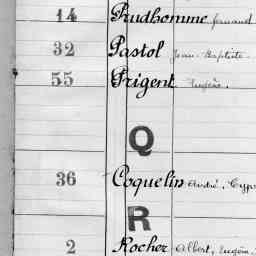 14 Prudhomme Fernand
32 Pastol Jean-Baptiste
55 Prigent Eugène.
Q
36 Coquelin André,
R
2 Rocher Albert, Eugène.